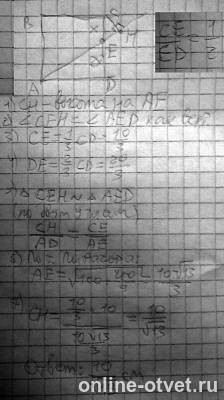 B C
H
E
A D
CE/CD = 1/2
1) CH – высота на AE
2) <CEH = <AED как верт
3) CE = 1/3 CD = 10/3
4) DE = 2/3 CD = 20/3
5) △CEH ~ △AED
(по двум углам)
CH/AD = CE/AE
6) По т. Пифагора:
AE = √100 + 400/9 = 10√13/3
7) CH = 10/3 · 10 / 10√13/3 = 10/√13
Ответ: 10/√13 см
online-otvet.ru